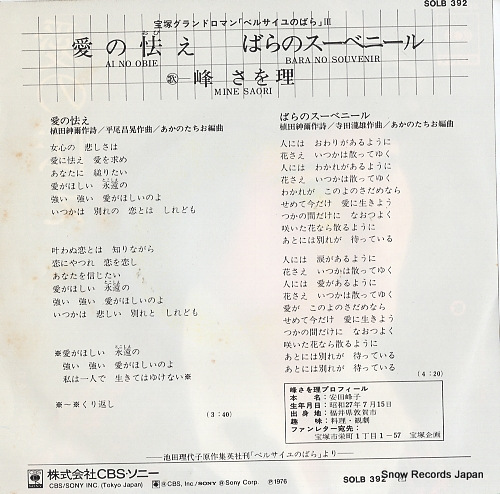 SOLB 392
宝塚グランドロマン「ベルサイユのばら」III
愛の怯え ばらのスーベニール
おび
AI NO OBIE BARA NO SOUVENIR
歌 峰 さを理
MINE SAORI
愛の怯え
植田紳爾作詩/平尾昌晃作曲/あかのたちお編曲
女心の 悲しさは
愛に怯え 愛を求め
あなたに 縋りたい
愛がほしい 永遠の
強い 強い 愛がほしいのよ
いつかは 別れの 恋とは しれども
叶わぬ恋とは 知りながら
恋にやつれ 恋を恋し
あなたを信じたい
愛がほしい 永遠の
強い 強い 愛がほしいのよ
いつかは 悲しい 別れと しれども
※愛がほしい 永遠の
強い 強い 愛がほしいのよ
私は一人で 生きてはゆけない※
※〜※くり返し
(3:40)
ばらのスーベニール
植田紳爾作詩/寺田瀧雄作曲/あかのたちお編曲
人には おわりがあるように
花さえ いつかは散ってゆく
人には わかれがあるように
花さえ いつかは散ってゆく
わかれが このよのさだめなら
せめて今だけ 愛に生きよう
つかの間だけに なおつよく
咲いた花なら散るように
あとには別れが 待っている
人には 涙があるように
花さえ いつかは散ってゆく
人には 愛があるように
花さえ いつかは散ってゆく
愛が このよのさだめなら
せめて今だけ 愛に生きよう
つかの間だけに なおつよく
咲いた花なら散るように
あとには別れが 待っている
あとには別れが 待っている
(4:20)
峰さを理プロフィール
本名:安田峰子
生年月日:昭和27年7月15日
出身地:福井県敦賀市
趣味:料理・観劇
ファンレター宛先:
宝塚市栄町1丁目1-57 宝塚企画
—池田理代子原作集英社刊「ベルサイユのばら」より—
株式会社CBS・ソニー
CBS/SONY INC. (Tokyo Japan)
CBS, Inc./SONY Sony Corp. Ⓟ1976
SOLB 392
Snow Records Japan